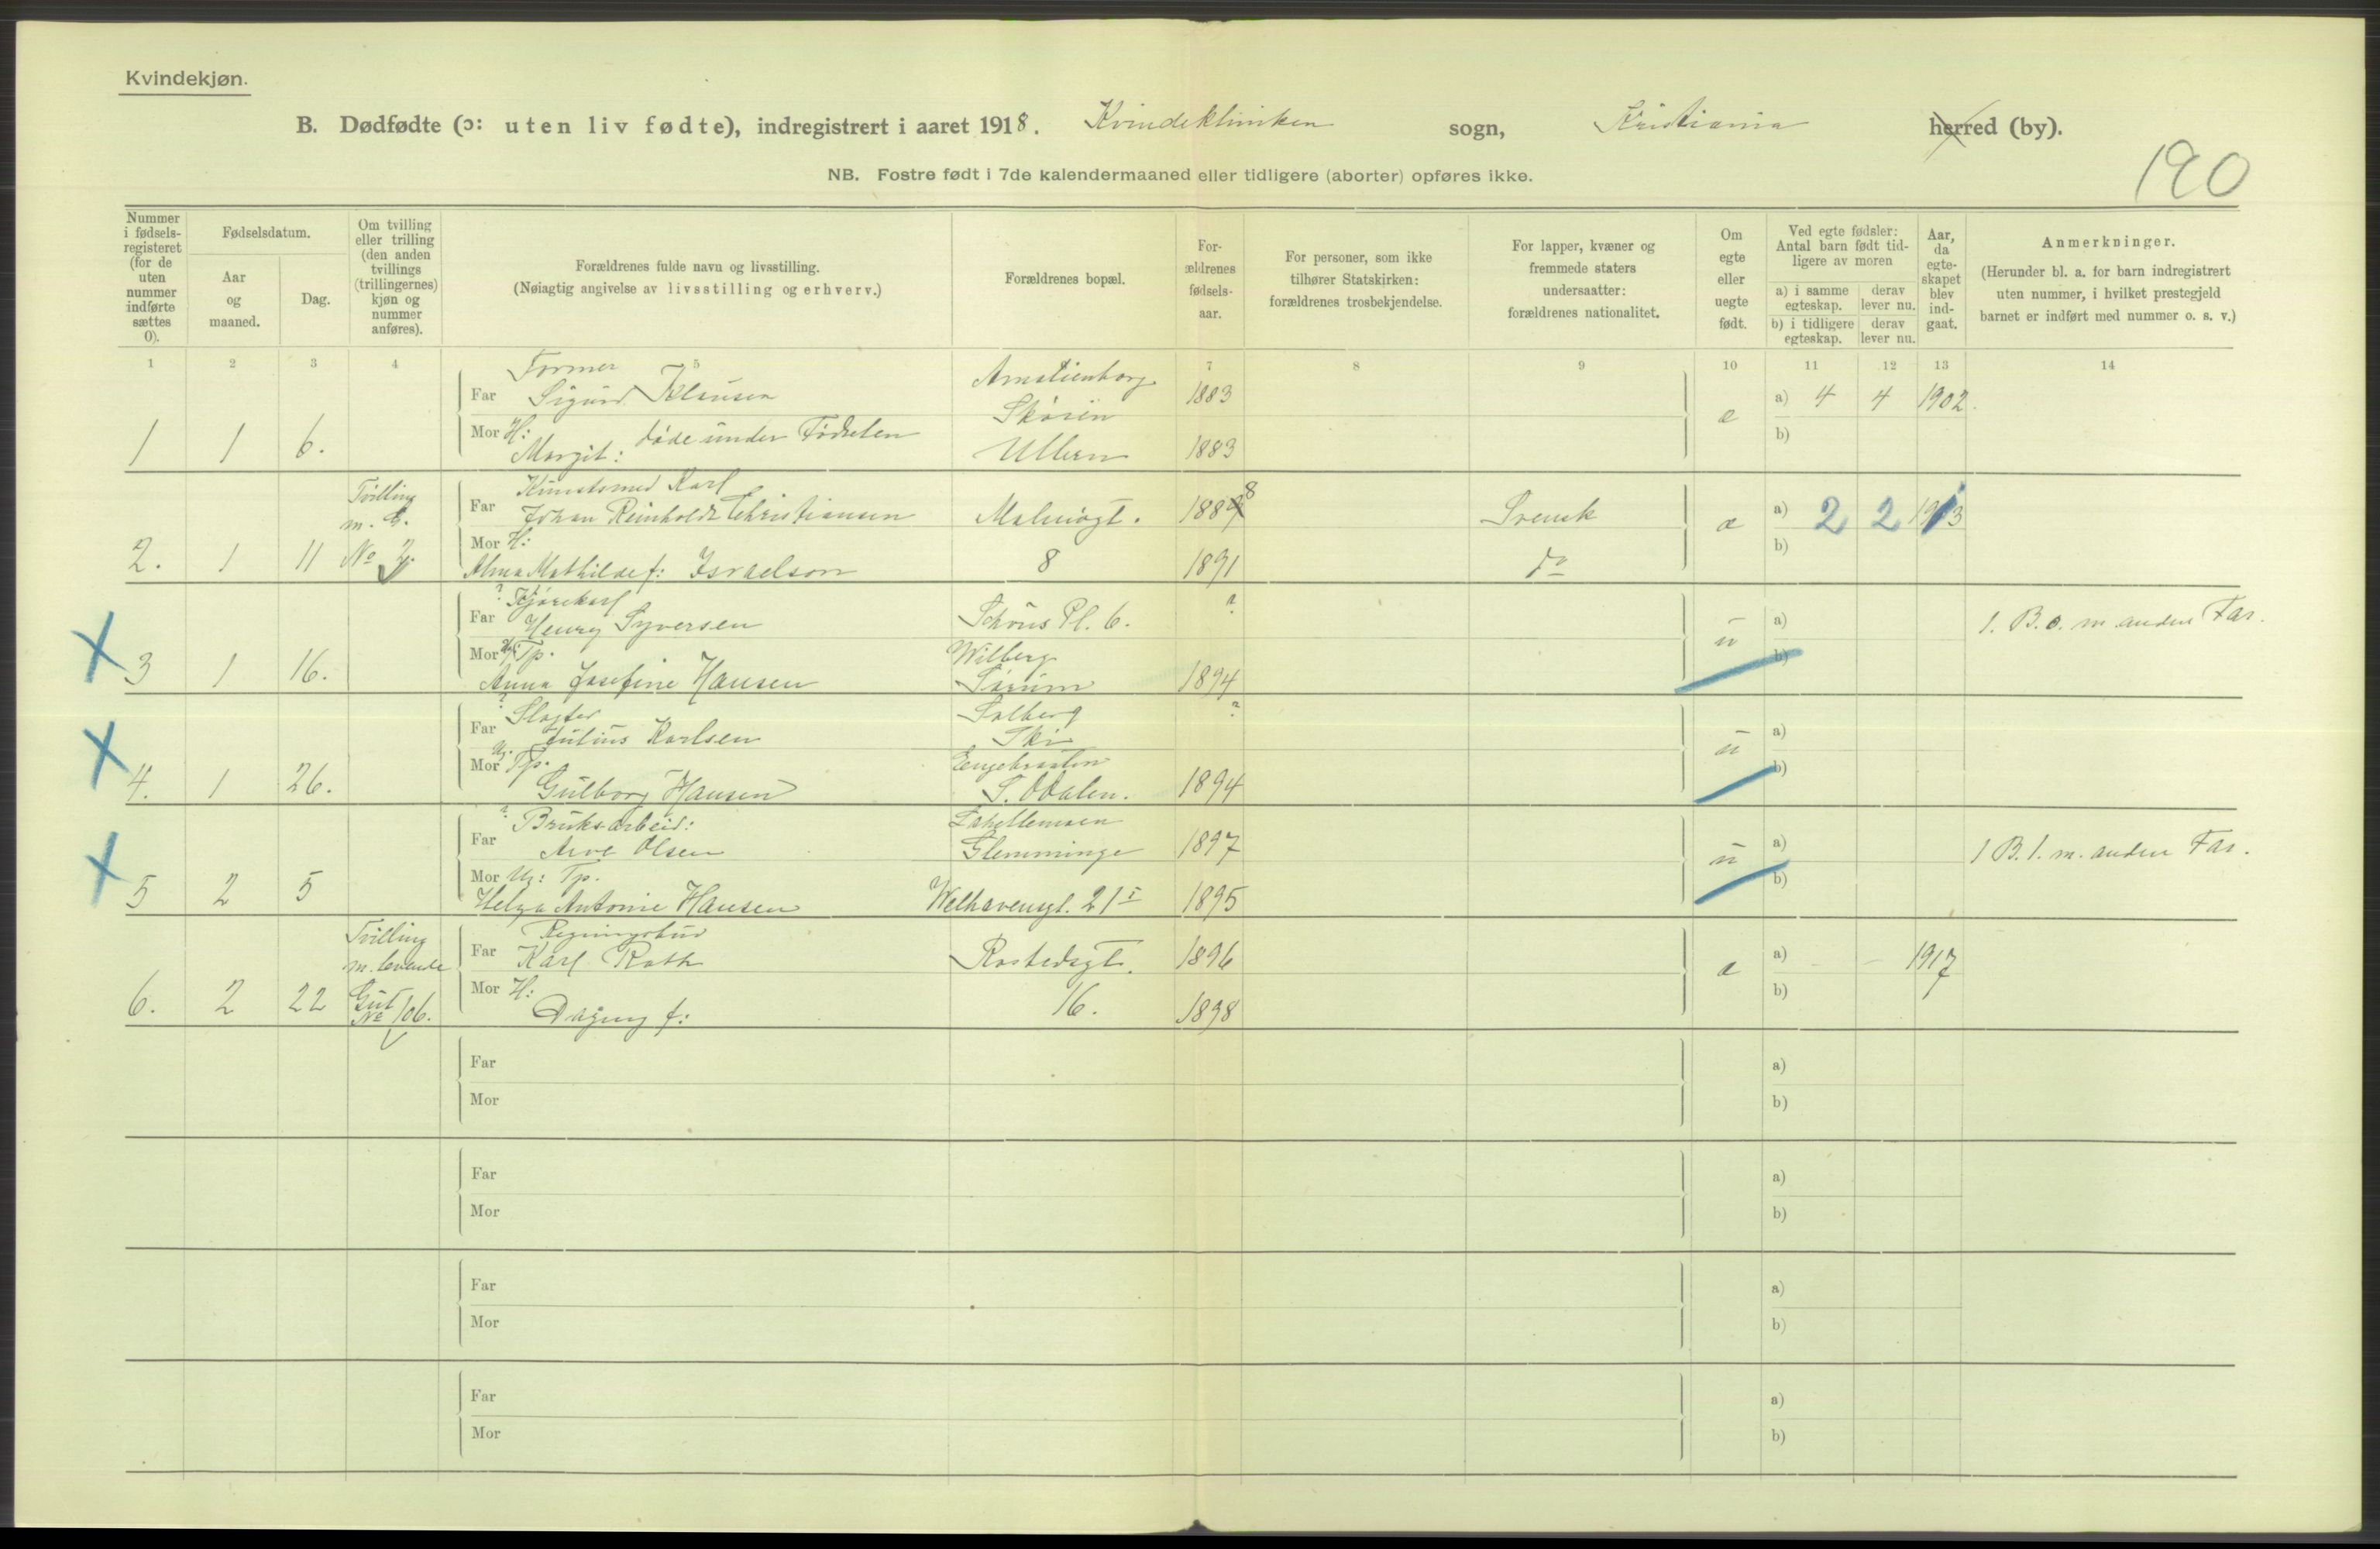 Kvindekjøn.
B. Dødfødte (ɔ: uten liv fødte), indregistrert i aaret 1918. Kvindeklinikken sogn, Kristiania herred (by).
NB. Fostre født i 7de kalendermaaned eller tidligere (aborter) opføres ikke.
190
Nummer i fødsels-registeret (for de uten nummer indførte sættes 0).
Fødselsdatum.
Aar og maaned.
Dag.
Om tvilling eller trilling (den anden tvillings (trillingernes) kjøn og nummer anføres).
Forældrenes fulde navn og livsstilling.
(Nøiagtig angivelse av livsstilling og erhverv.)
Forældrenes bopæl.
For-ældrenes fødsels-aar.
For personer, som ikke tilhører Statskirken: forældrenes trosbekjendelse.
For lapper, kvæner og fremmede staters undersaatter: forældrenes nationalitet.
Om egte eller uegte født.
Ved egte fødsler: Antal barn født tid-ligere av moren
a) i samme egteskap. derav lever nu.
b) i tidligere egteskap. derav lever nu.
Aar, da egte-skapet blev ind-gaat.
Anmerkninger.
(Herunder bl. a. for barn indregistrert uten nummer, i hvilket prestegjeld barnet er indført med nummer o. s. v.)
1 2 3 4 5 7 8 9 10 11 12 13 14
Former
Far Sigurd Klausen Amalienborg 1883 a) 4 4 1902.
Skøien
1 1 6. Mor H: Margit: døde under Fødselen Ullern 1883 e b)
Tvilling m. G. No 2.
Far Kunstsmed Karl
Johan Reinholdt Christiansen Malmøgt. 1888 Svensk a) 2 2 1913
2. 1 11 Mor H:
Alma Mathilde f: Israelson 8 1891 do e b)
? Kjørekarl
Far Henry Syversen Schøus Pl. 6. ? a) 1. B. o. m anden Far.
3 1 16. Mor Ug: Tp. Wilberg u b)
Anna Josefine Hansen Sørum 1894
? Slagter Solberg ?
Far Julius Karlsen Ski a)
4. 1 26. Mor Ug. Tp. u b)
Gulborg Hansen S. Odalen. 1894
? Bruksarbeid:
Far Arve Olsen Glemminge 1897 a) 1 B. 1. m. anden Far.
5 2 5 Mor Ug: Tp. u b)
Helga Antonie Hansen Welhavensgt. 21 I 1895
Tvilling m. levende Gut No 106.
Regningsbud
Far Karl Roth Rostedsgt. 1896 a) - - 1917
6. 2 22 Mor H: 16. e b)
Dagny f: 1898
Far a)
Mor b)
Far a)
Mor b)
Far a)
Mor b)
Far a)
Mor b)